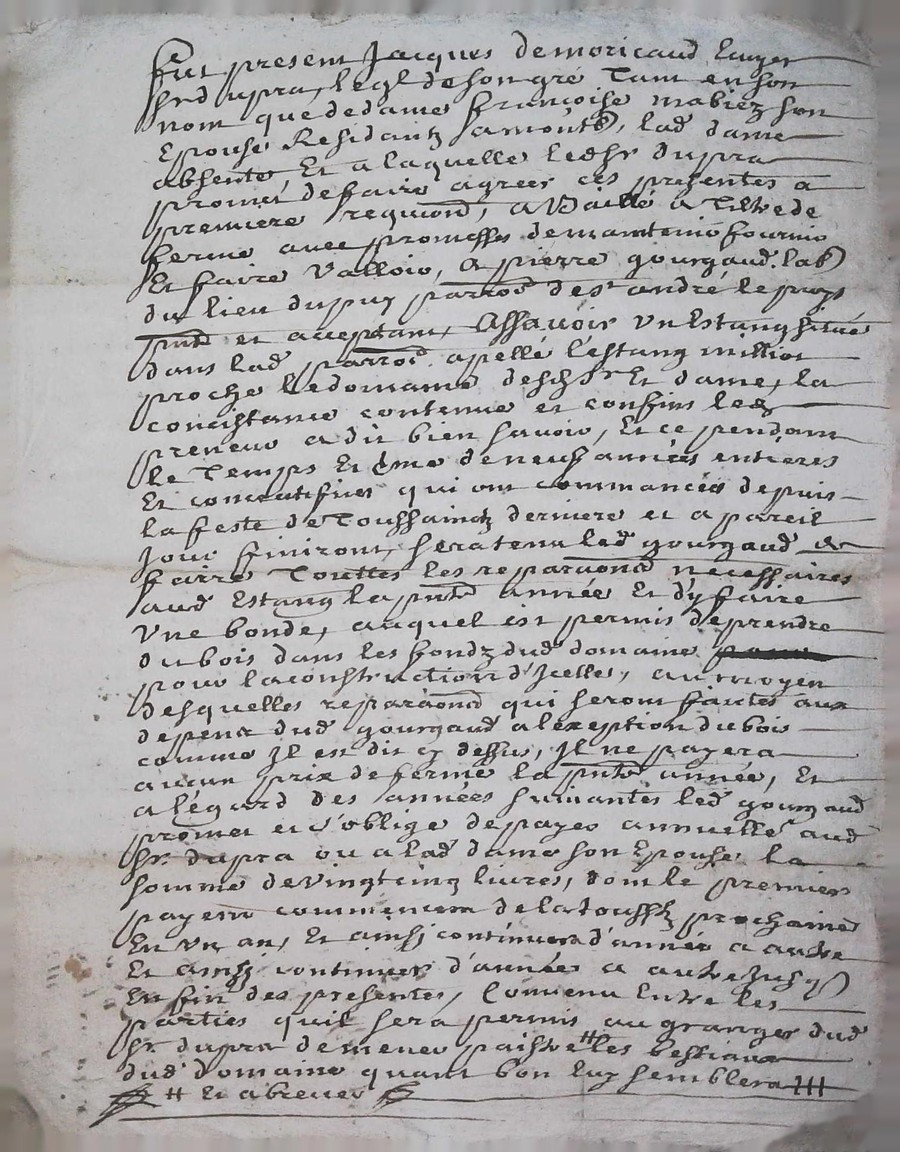 Fut present Jacques demoricaud Escuyer
Sr dupra, leql desongré Tant en son
nom que dedame françoise mabiez son
Epouse Residantz lad dame
absente Et a laquelle ledsr dupra
promet defaire agreer ces presentes a
premiere requion, a Baillé a Tiltre de
ferme avec promesses demaintenir fournir
Et faire Valloir, a pierre gourgaud lab
du lieu dupuy parroe de st andré le puys
pnt et acceptant, Assavoir Un Estang situé
dans lad parroe apellé l'estang millior
proche ledomaine desd Sr Et dame, la
concistance contenue et confins led
preneur a dit bien savoir, Et ce pendant
le Temps Et tme de neuf années entieres
Et concecutifves qui ont commancées depuis
la feste de Toussainctz derniere et a pareil
Jour finiront, sera tenu led gourgaud de
faire Touttes les reparaons necessaires
aud Estang la pnte année Et d'y faire
Une bonde, auquel est permis de prendre
du bois dans les fondz dud domaine
pour la construction d'Icelle, au moyen
desquelles reparaons qui seront faictes aux
depens dud gourgaud a lexeption du bois
comme Il est dit cy dessus, Il ne payera
aucun prix de ferme la pnte année, Et
a légard des années suivantes led gourgaud
promet et s'oblige depayer annuellet aud
Sr. dupra ou a lad dame son Epouse la
somme de vingtcinq livres, dont le premier
payemt commencera de la toussts prochaine
En un an, Et ainsi continuera d'année a autre
Et ainsi continuer d'année a autre Jusq
En fin des presentes, Convenu Entre les
parties quil sera permis au granger dud
Sr. dupra de mener paistre # les bestiaux
dud domaine quant bon luy semblera
# Et abreuver